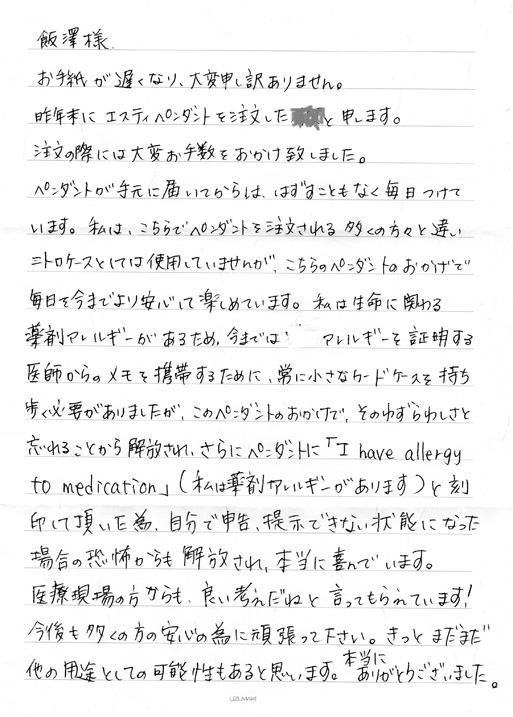 飯澤様.
お手紙が遅くなり、大変申し訳ありません。
昨年末にエスティペンダントを注文した と申します。
注文の際には大変お手数をおかけ致しました。
ペンダントが手元に届いてからは、はずすこともなく毎日つけて
います。私は、こちらでペンダントを注文される多くの方々と違い
ニトロケースとしては使用していませんが、こちらのペンダントのおかげで
毎日を今までより安心して楽しめています。私は生命に関わる
薬剤アレルギーがあるため、今までは アレルギーを証明する
医師からのメモを携帯するために、常に小さなカードケースを持ち
歩く必要がありましたが、このペンダントのおかげで、そのわずらわしさと
忘れることから解放され、さらにペンダントに「I have allergy
to medication」(私は薬剤アレルギーがあります)と刻
印して頂いた為、自分で申告、提示できない状態になった
場合の恐怖からも解放され、本当に喜んでいます。
医療現場の方からも、良い考えだねと言ってもられています!
今後も多くの方の安心の為に頑張って下さい。きっとまだまだ
他の用途としての可能性もあると思います。本当にありがとうございました。
UZUMAKI